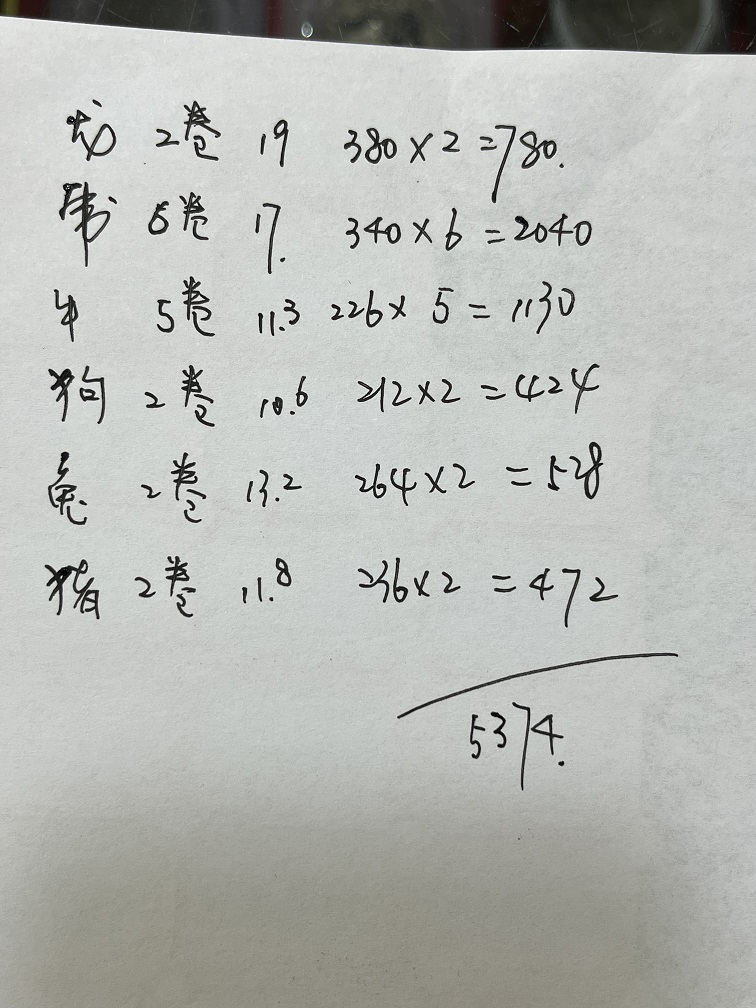 龙 2卷 19 380×2=780.
5卷 17. 340×6=2040
牛 5卷 11.3 226×5=1130
狗 2卷 10.6 212×2=424
兔 2卷 13.2 264×2=528
猪 2卷 11.8 236×2=472
5374.